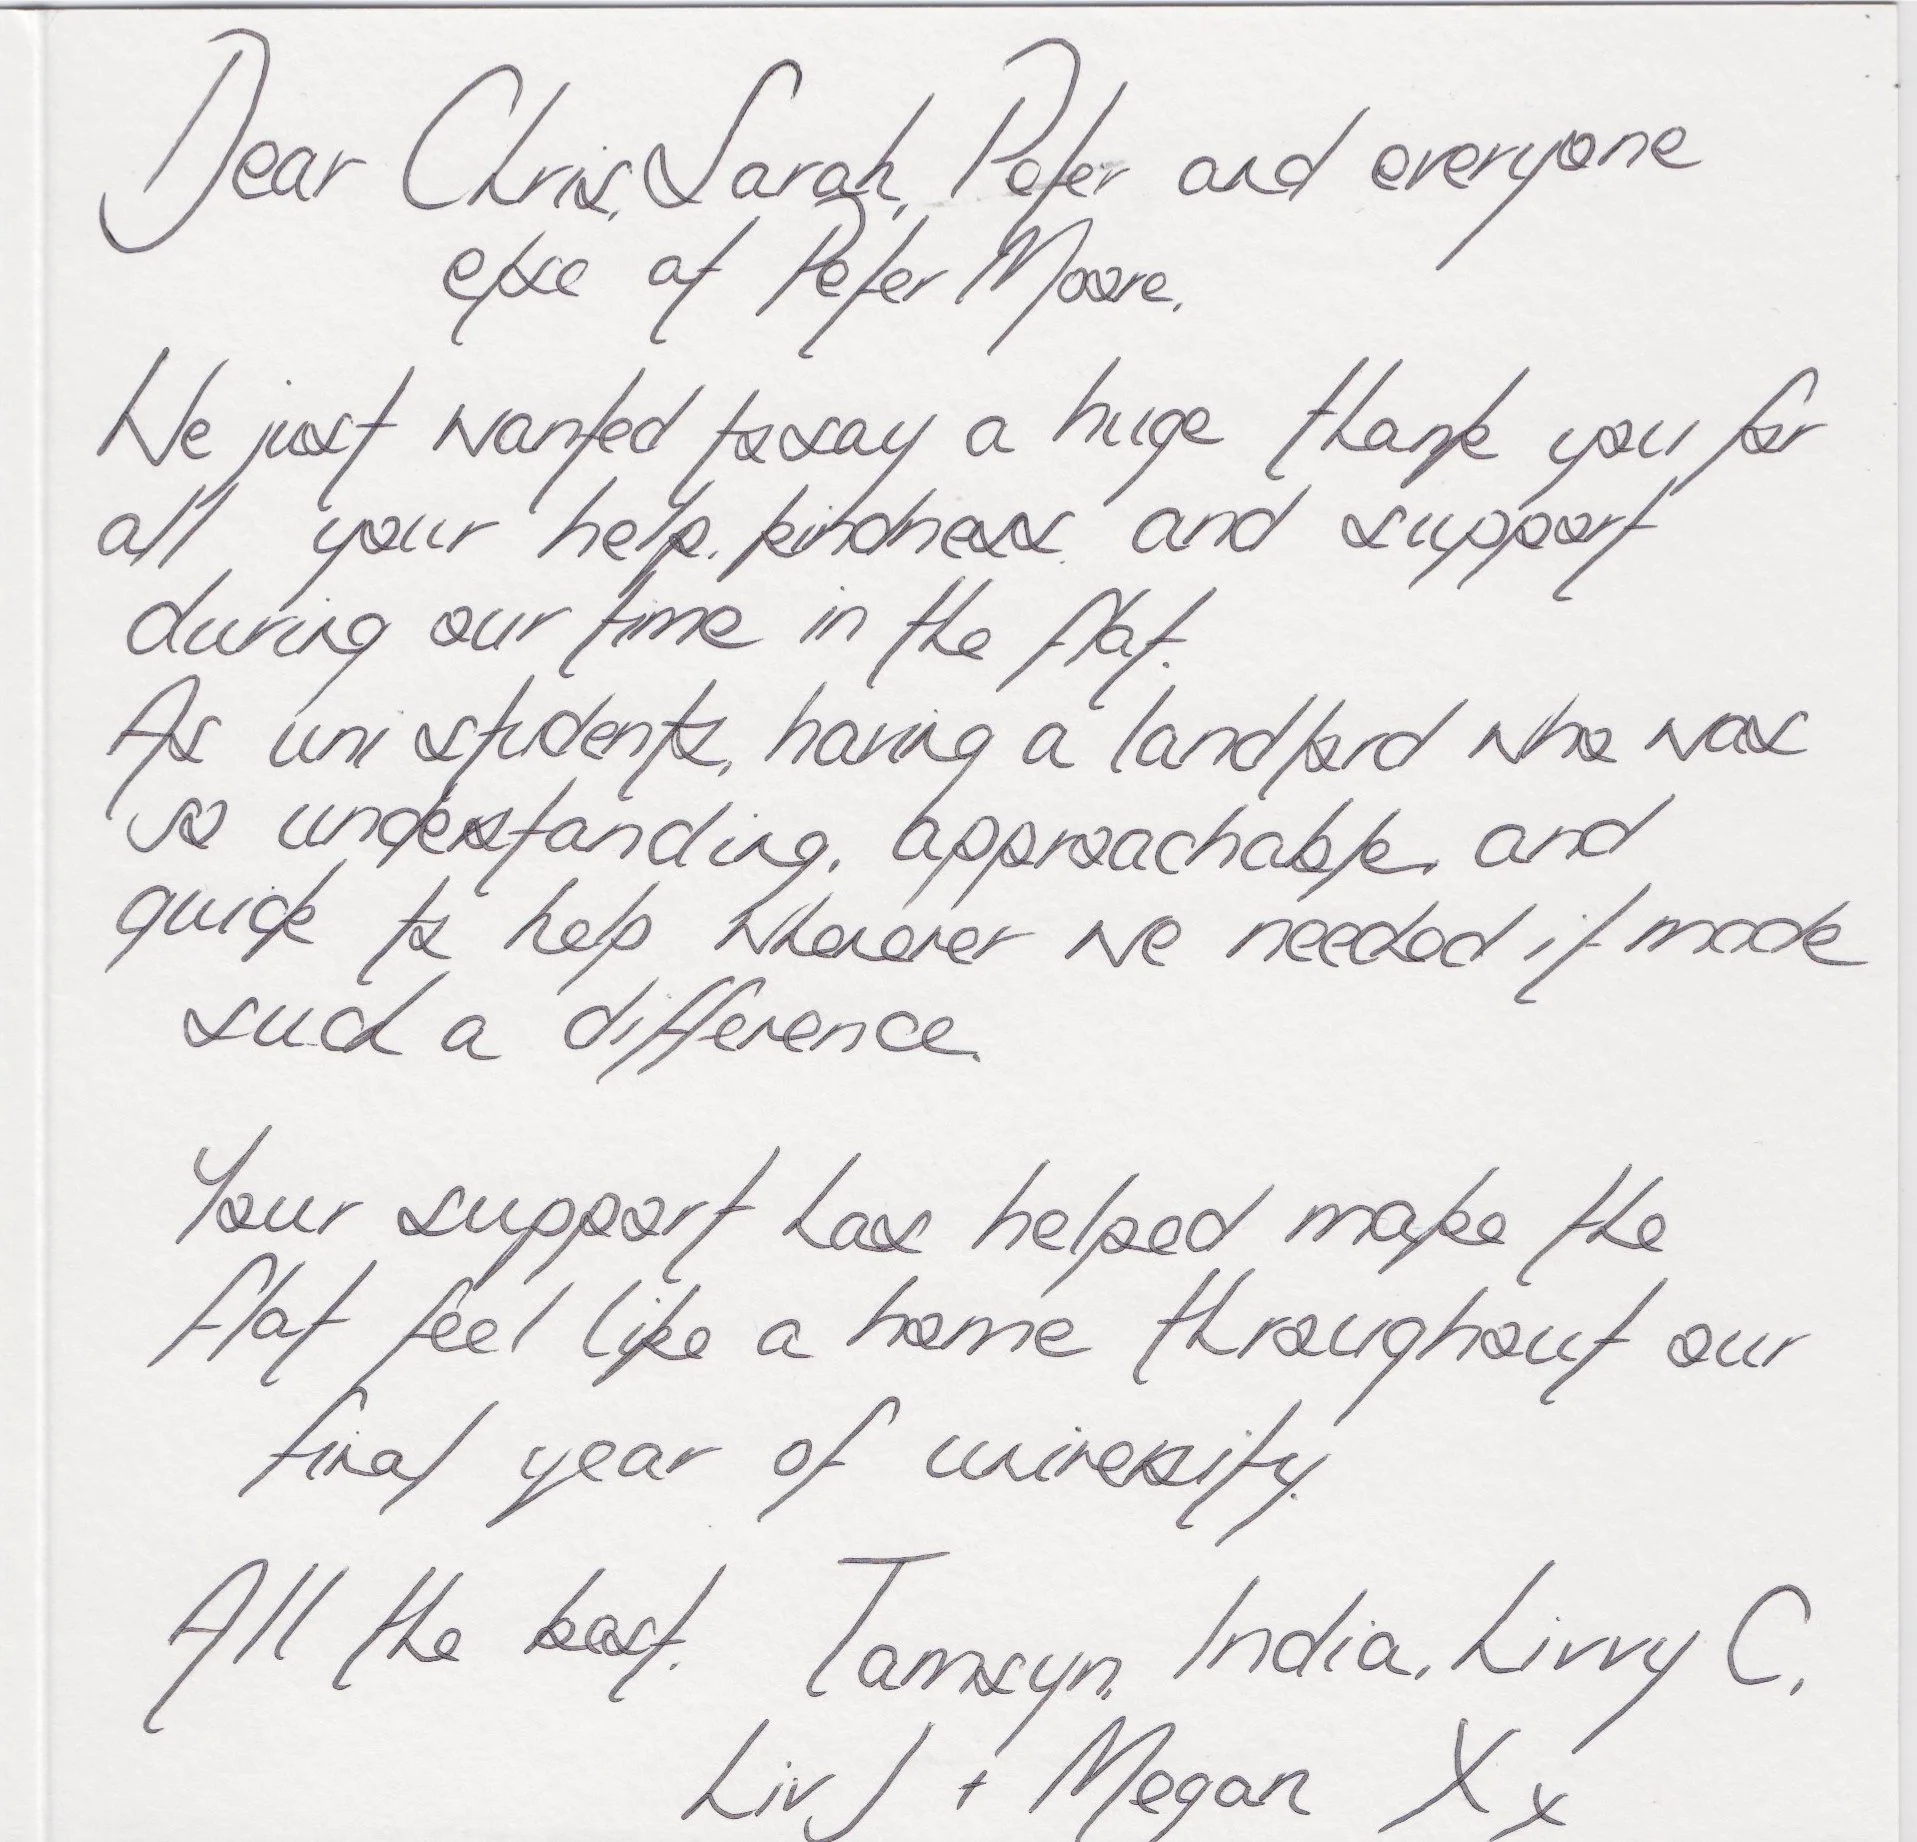 Dear Chris, Sarah, Peter and everyone
else at Peter Moore,
We just wanted to say a huge thank you for
all your help, kindness and support
during our time in the flat.
As uni students, having a landlord who was
so understanding, approachable, and
quick to help whenever we needed it made
such a difference.
Your support has helped make the
flat feel like a home throughout our
final year of university.
All the best, Tamsyn, India, Livvy C,
Liv J + Megan Xx